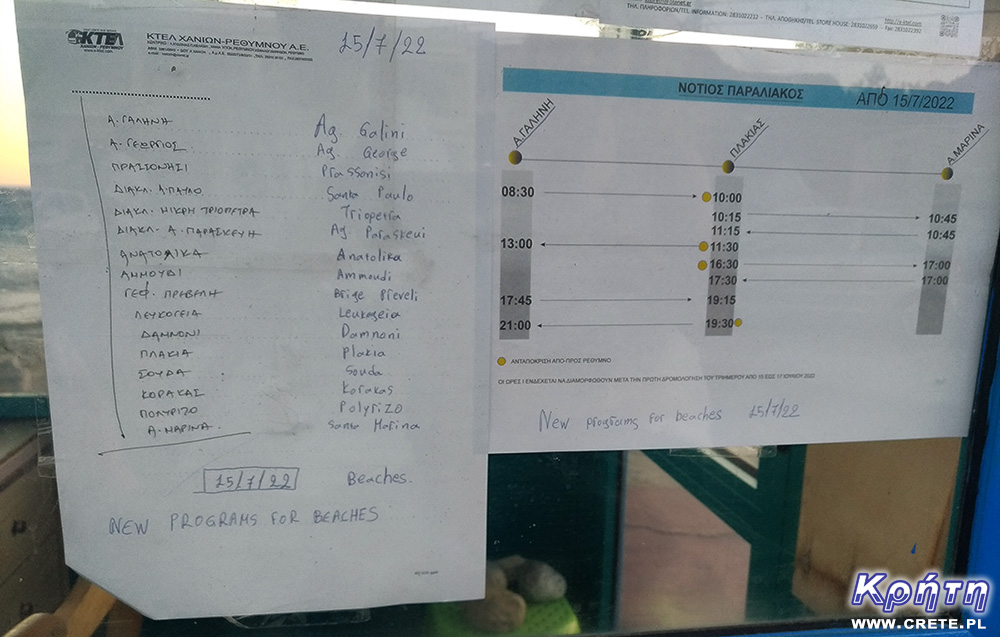 ΤΗΛ. ΠΛΗΡΟΦΟΡΙΩΝ/TEL. INFORMATION: 2831022212 – ΤΗΛ. ΑΠΟΘΗΚΗΣ/TEL STORE HOUSE: 2831022659
http://e-ktel.com
Fax: 2831022392
ΚΤΕΛ
ΧΑΝΙΩΝ-ΡΕΘΥΜΝΟΥ
ΚΤΕΛ ΧΑΝΙΩΝ-ΡΕΘΥΜΝΟΥ Α.Ε.
15/7/22
Α. ΓΑΛΗΝΗ Ag. Galini
Α. ΓΕΩΡΓΙΟΣ Ag. George
ΠΡΑΣΟΝΗΣΙ Prassonisi
ΔΙΑΚΛ. Α. ΠΑΥΛΟ Santa Paulo
ΔΙΑΚΛ. ΜΙΚΡΗ ΤΡΙΟΠΕΤΡΑ Triopetra
ΔΙΑΚΛ. Α. ΠΑΡΑΣΚΕΥΗ Ag Paraskeui
ΑΝΑΤΟΛΙΚΑ Anatolika
ΑΜΜΟΥΔΙ Ammoudi
ΓΕΦ. ΠΡΕΒΕΛΗ Brige Preveli
ΛΕΥΚΟΓΕΙΑ Leukogeia
ΔΑΜΝΟΝΙ Damnoni
ΠΛΑΚΙΑ Plakia
ΣΟΥΔΑ Souda
ΚΟΡΑΚΑΣ Korakas
ΠΟΛΥΡΙΖΟ Polyrizo
Α. ΜΑΡΙΝΑ. Santa Marina
15/7/22 Beaches.
NEW PROGRAMS FOR BEACHES
ΝΟΤΙΟΣ ΠΑΡΑΛΙΑΚΟΣ ΑΠΌ 15/7/2022
Α.ΓΑΛΗΝΗ ΠΛΑΚΙΑΣ Α.ΜΑΡΙΝΑ
08:30 10:00
10:15 10:45
11:15 10:45
13:00 11:30
16:30 17:00
17:30 17:00
17:45 19:15
21:00 19:30
ΑΝΤΑΠΟΚΡΙΣΗ ΑΠΟ-ΠΡΟΣ ΡΕΘΥΜΝΟ
ΟΙ ΩΡΕΣ Ι ΕΝΔΕΧΕΤΑΙ ΝΑ ΔΙΑΜΟΡΦΩΘΟΥΝ ΜΕΤΑ ΤΗΝ ΠΡΩΤΗ ΔΡΟΜΟΛΟΓΗΣΗ ΤΟΥ ΤΡΙΗΜΕΡΟΥ ΑΠΟ 15 ΕΩΣ 17 ΙΟΥΛΙΟΥ 2022
New programs for beaches 15/7/22
Κρήτη
WWW.CRETE.PL